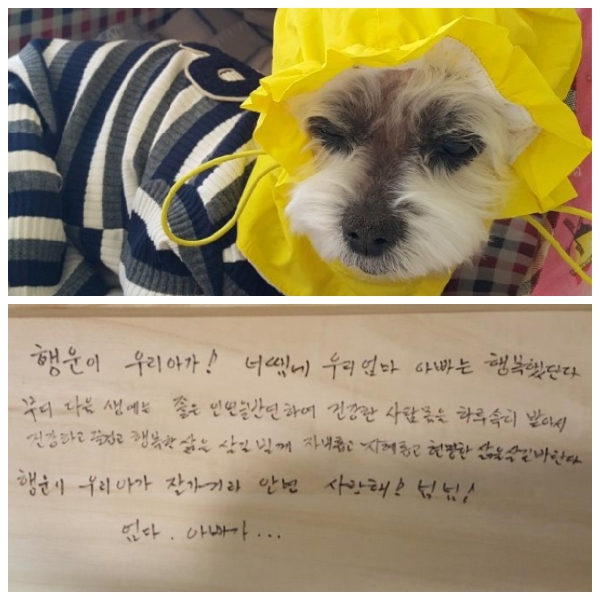 행운이 우리아가! 너 땜에 우리엄마 아빠는 행복했단다
부디 다음 생에는 좋은 인연을 하여 건강한 사람몸을 하루속히 받아서
건강하고 행복한 삶을 살길 빌게 자비롭고 지혜롭고 현명한 삶을살길바란다
행운이 우리아가 잘가거라 안녕 사랑해! 넘 넘!
엄다. 아빠가...